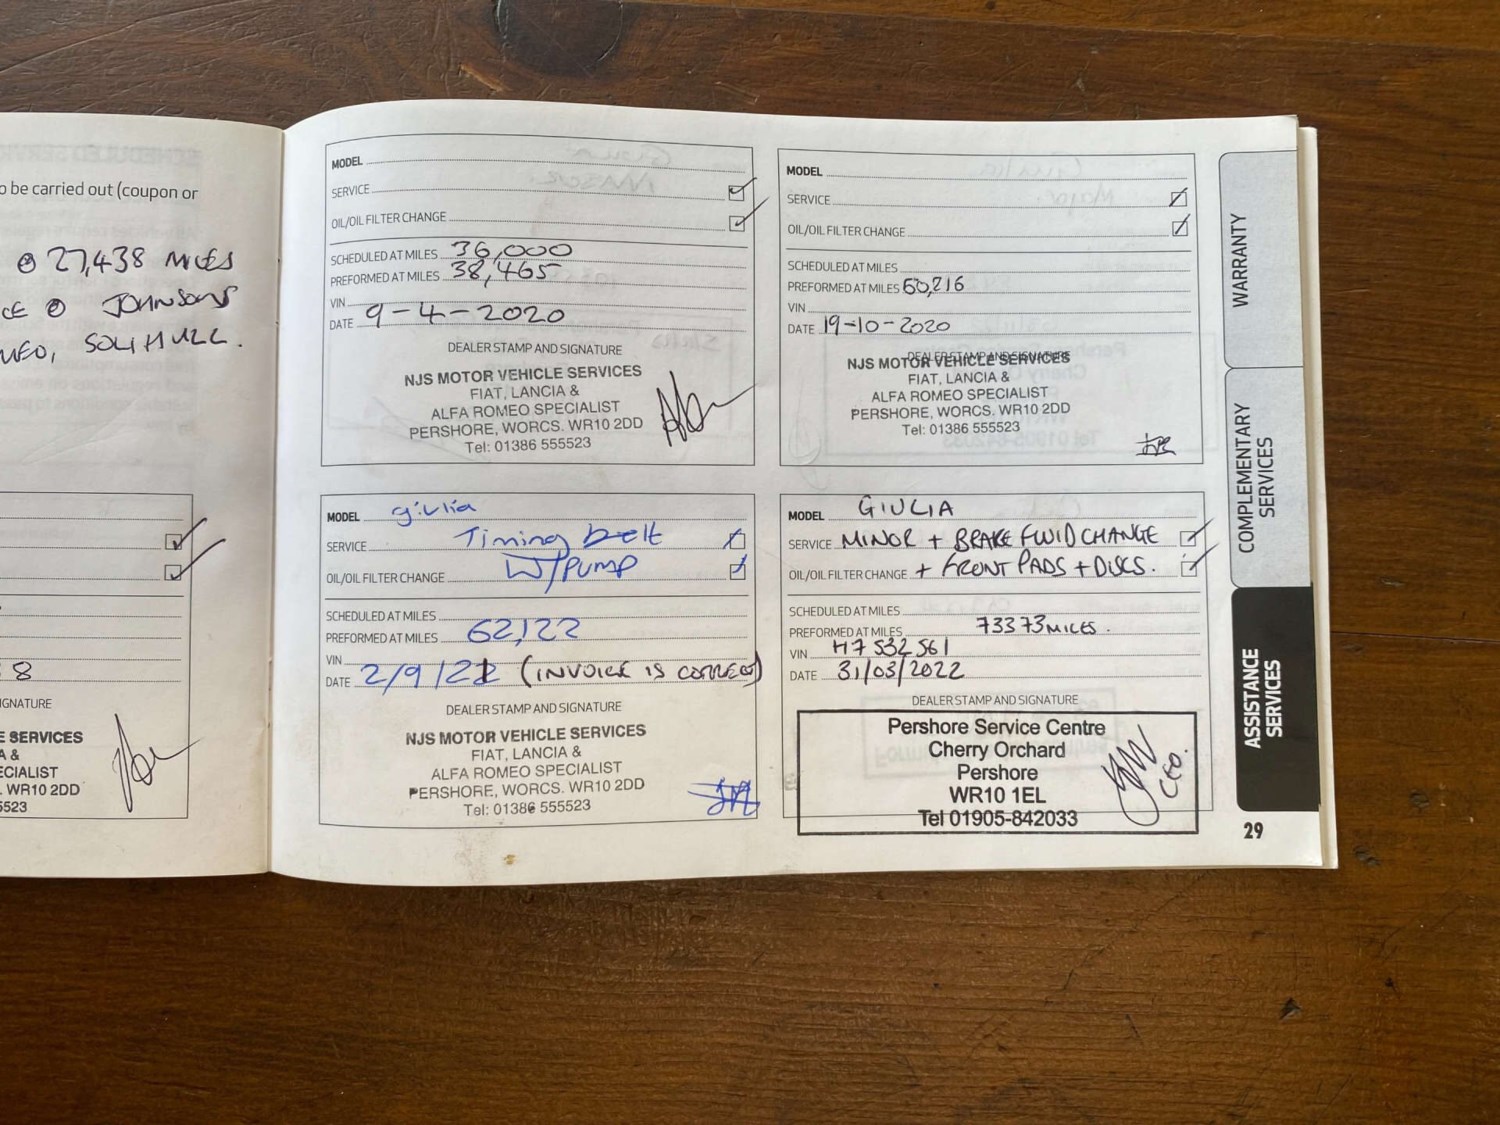 o be carried out (coupon or
@ 27,438 MILES
CE @ JOHNSONS
MEO, SOLIHULL.
8
GNATURE
E SERVICES
A &
ECIALIST
. WR10 2DD
5523
MODEL
SERVICE
OIL/OIL FILTER CHANGE
SCHEDULED AT MILES 36,000
PREFORMED AT MILES 38,465
VIN
DATE 9-4-2020
DEALER STAMP AND SIGNATURE
NJS MOTOR VEHICLE SERVICES
FIAT, LANCIA &
ALFA ROMEO SPECIALIST
PERSHORE, WORCS. WR10 2DD
Tel: 01386 555523
MODEL
SERVICE
OIL/OIL FILTER CHANGE
SCHEDULED AT MILES
PREFORMED AT MILES 50,216
VIN
DATE 19-10-2020
DEALER STAMP AND SIGNATURE
NJS MOTOR VEHICLE SERVICES
FIAT, LANCIA &
ALFA ROMEO SPECIALIST
PERSHORE, WORCS. WR10 2DD
Tel: 01386 555523
MODEL giulia
SERVICE Timing belt
OIL/OIL FILTER CHANGE W/PUMP
SCHEDULED AT MILES
PREFORMED AT MILES 62,122
VIN
DATE 2/9/21 (INVOICE IS CORRECT)
DEALER STAMP AND SIGNATURE
NJS MOTOR VEHICLE SERVICES
FIAT, LANCIA &
ALFA ROMEO SPECIALIST
PERSHORE, WORCS. WR10 2DD
Tel: 01386 555523
MODEL GIULIA
SERVICE MINOR + BRAKE FLUID CHANGE
OIL/OIL FILTER CHANGE + FRONT PADS + DISCS.
SCHEDULED AT MILES
PREFORMED AT MILES 73373 MILES.
VIN H7532561
DATE 31/03/2022
DEALER STAMP AND SIGNATURE
Pershore Service Centre
Cherry Orchard
Pershore
WR10 1EL
Tel 01905-842033
CEO.
WARRANTY
COMPLEMENTARY
SERVICES
ASSISTANCE
SERVICES
29